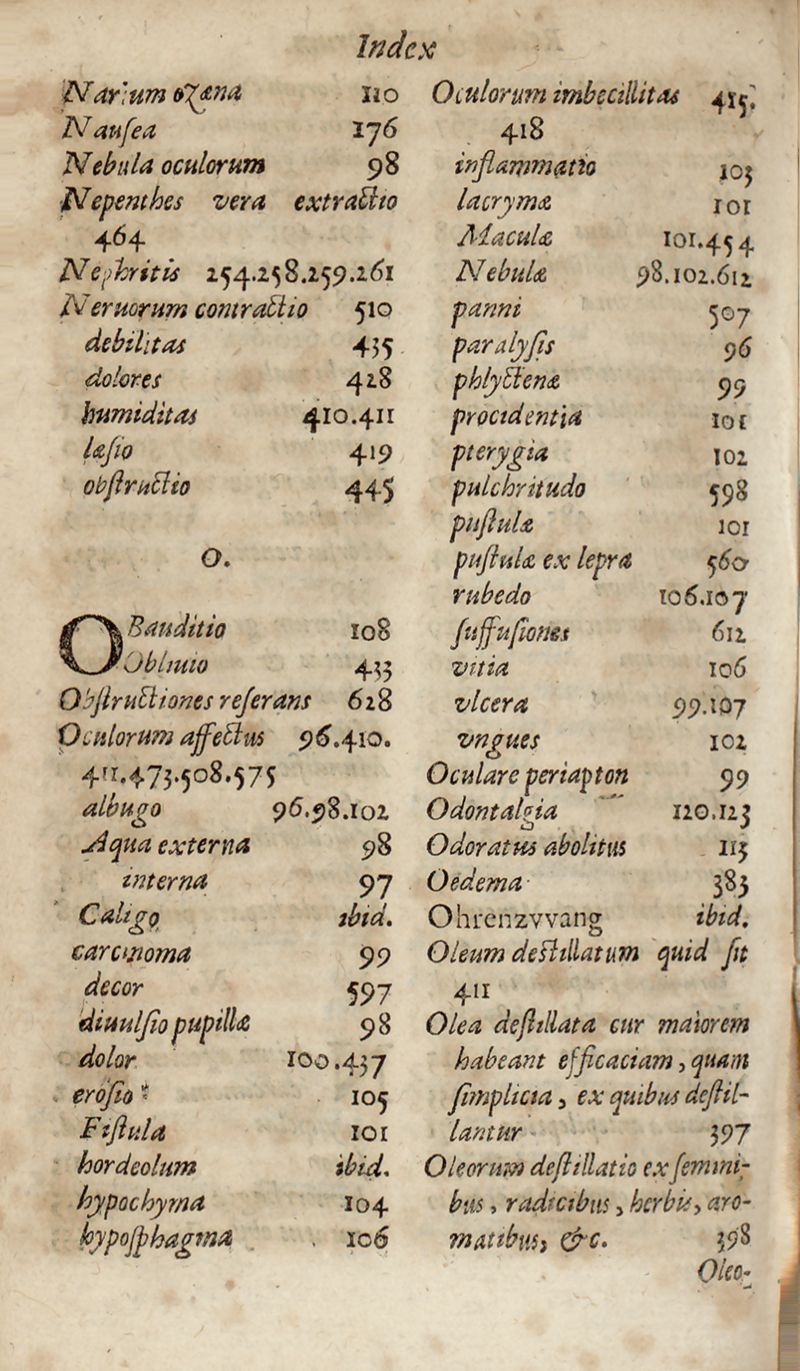 Index
Narium oζæna 110
Nausea 176
Nebula oculorum 98
Nepenthes vera extractio
464
Nephritis 254.258.259.261
Neruorum contractio 510
debilitas 435
dolores 428
humiditas 410.411
læsio 419
obstructio 445
O.
OBauditio 108
Obliuio 433
Obstructiones referans 628
Oculorum affectus 96.410.
411.473.508.575
albugo 96.98.102
Aqua externa 98
interna 97
Caligo ibid.
carcinoma 99
decor 597
diuulsio pupillæ 98
dolor 100.437
erosio 105
Fistula 101
hordeolum ibid.
hypochyma 104
hyposphagma 106
Oculorum imbecillitas 415.
418
inflammatio 103
lacrymæ 101
Maculæ 101.454
Nebulæ 98.102.612
panni 507
paralysis 96
phlyctenæ 99
procidentia 101
pterygia 102
pulchritudo 598
pustulæ 101
pustulæ ex lepra 560
rubedo 106.107
suffusiones 612
vitia 106
vlcera 99.107
vngues 102
Oculare periapton 99
Odontalgia 120.123
Odoratus abolitus 113
Oedema 383
Ohrenzvvang ibid.
Oleum destillatum quid sit
411
Olea destillata cur maiorem
habeant efficaciam, quam
simplicia, ex quibus destil-
lantur 397
Oleorum destillatio ex semini-
bus, radicibus, herbis, aro-
matibus, &c. 398
Oleo-